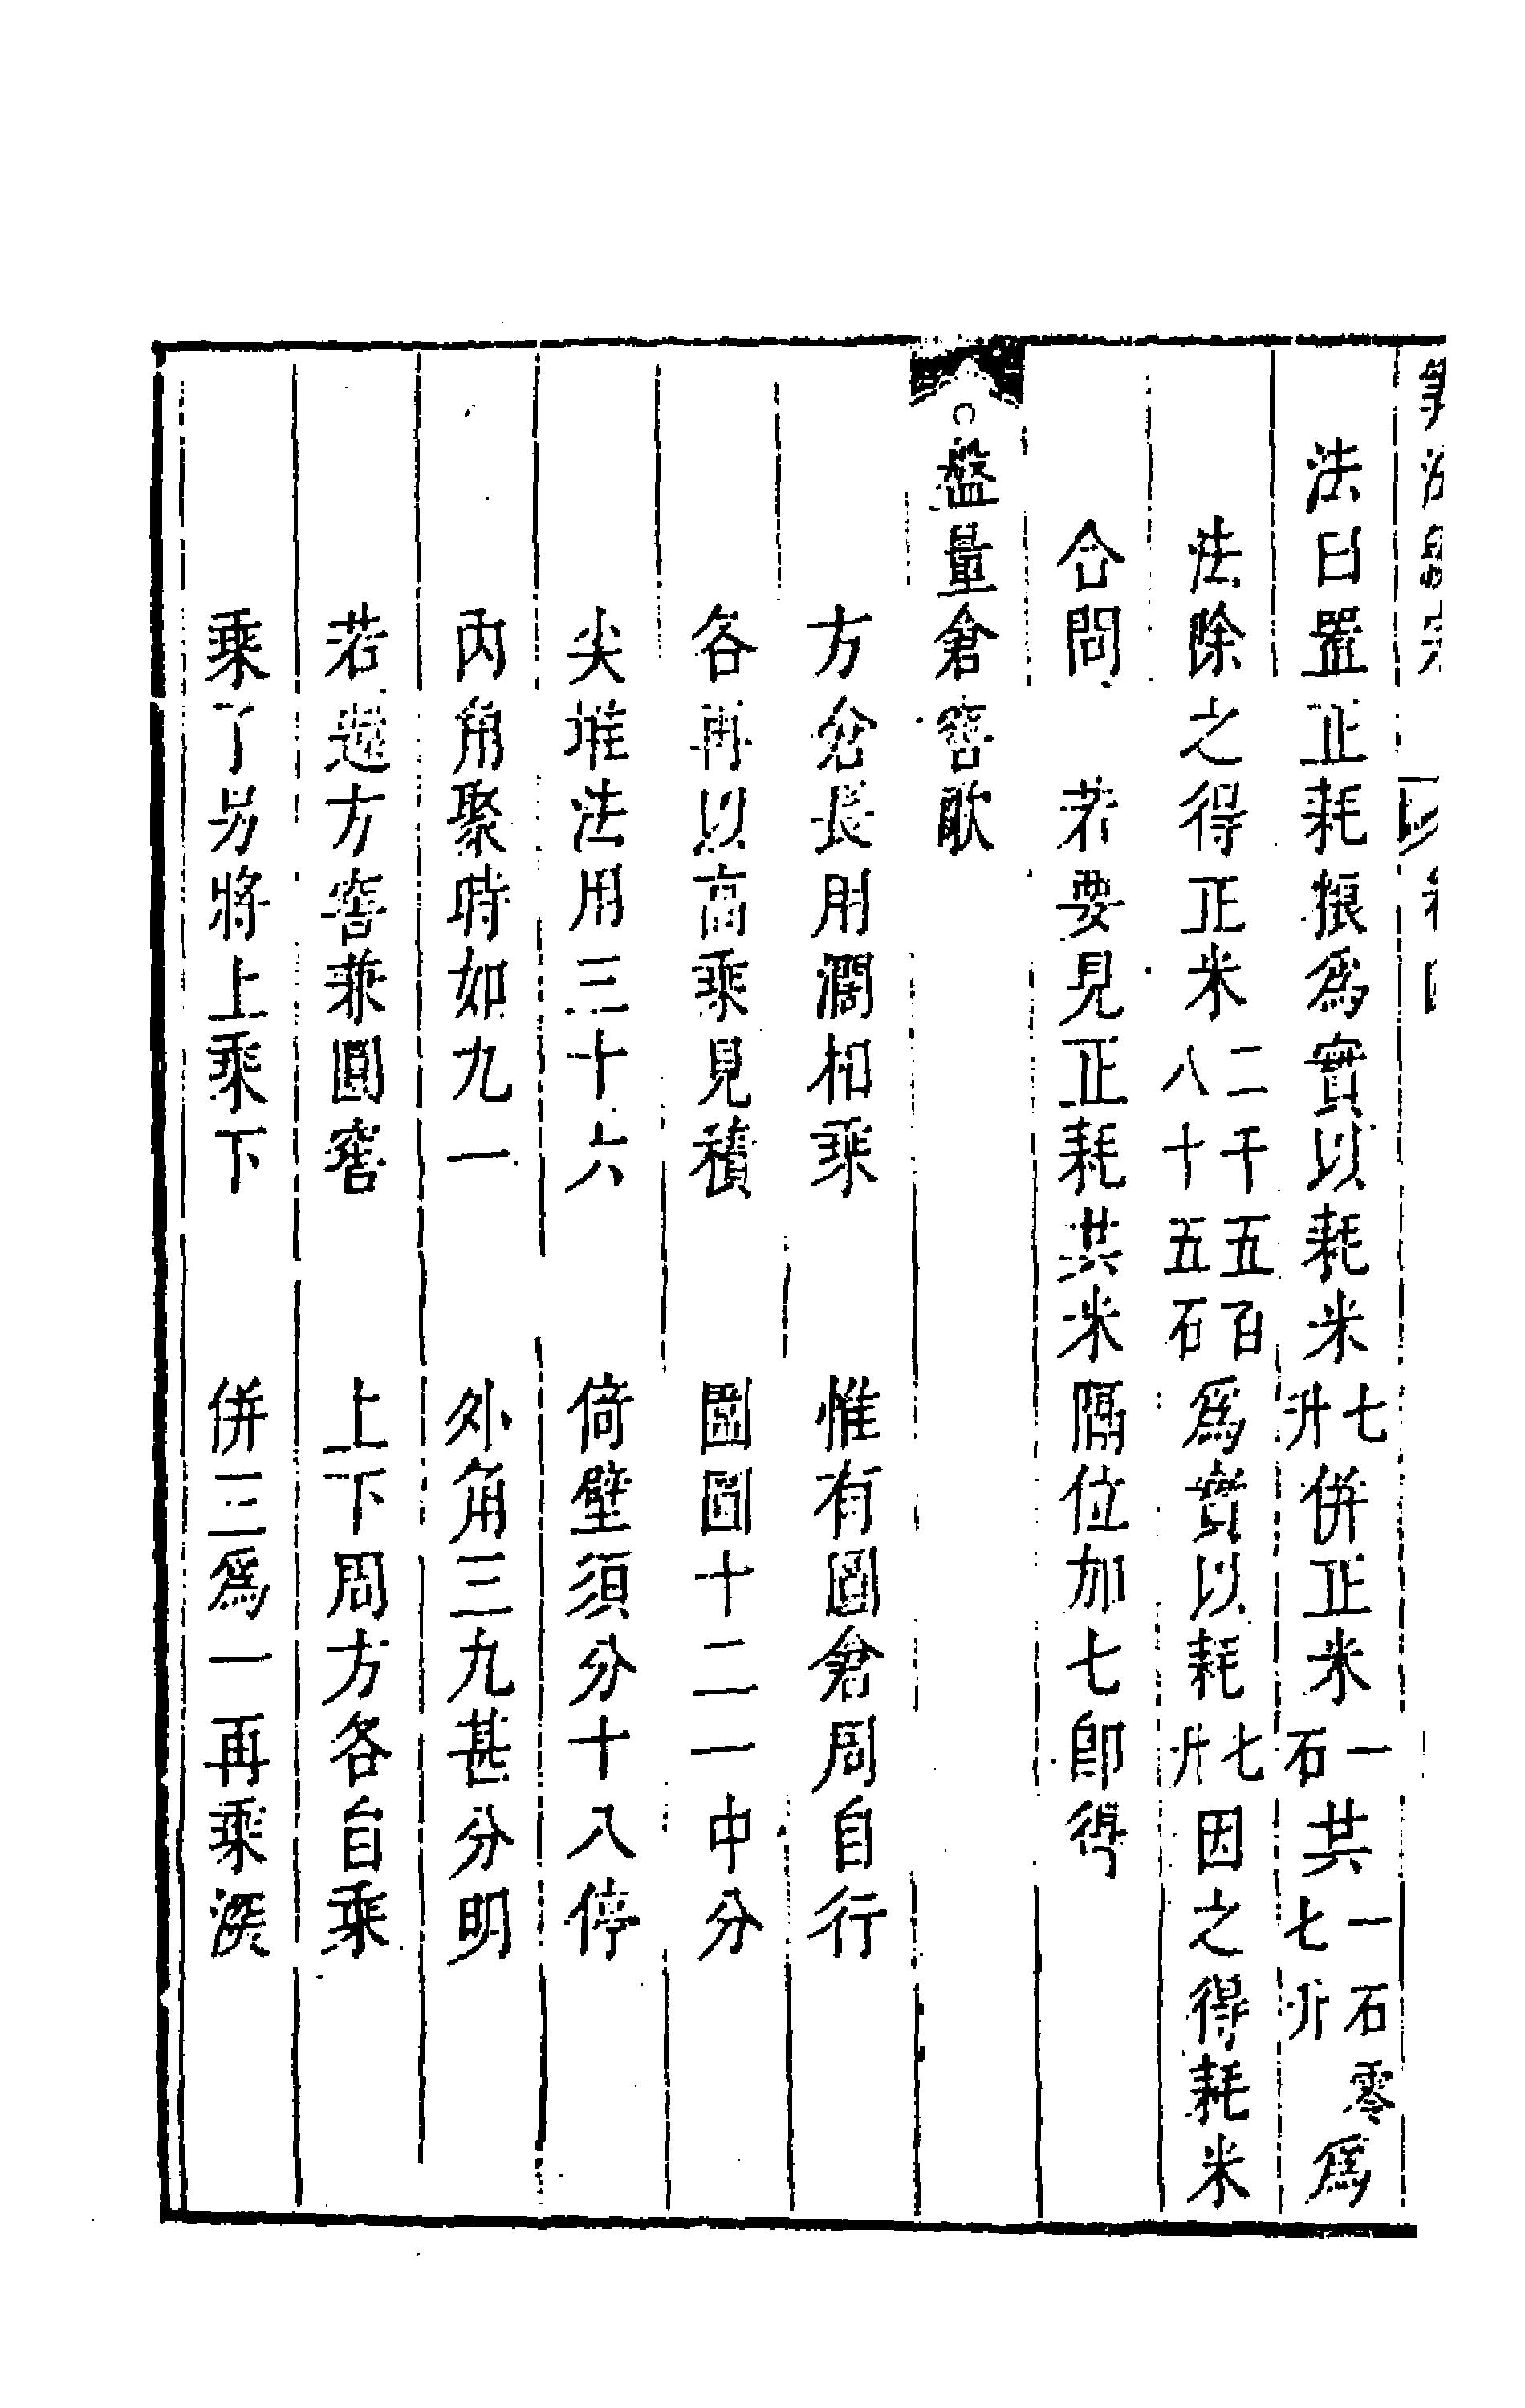 法曰置正耗粮爲實以耗米七升併正米一石共一石零七升爲
法除之得正米二千五百八十五石爲實以耗七升因之得耗米
合問　若要見正耗共米隔位加七卽得
盤量倉窖歌
方倉長用濶相乘　惟有圓倉周自行
各再以高乘見積　圍圓十二一中分
尖堆法用三十六　倚壁須分十八停
內角聚時如九一　外角三九甚分明
若還方窖兼圓窖　上下周方各自乘
乘了另將上乘下　併三爲一再乘深